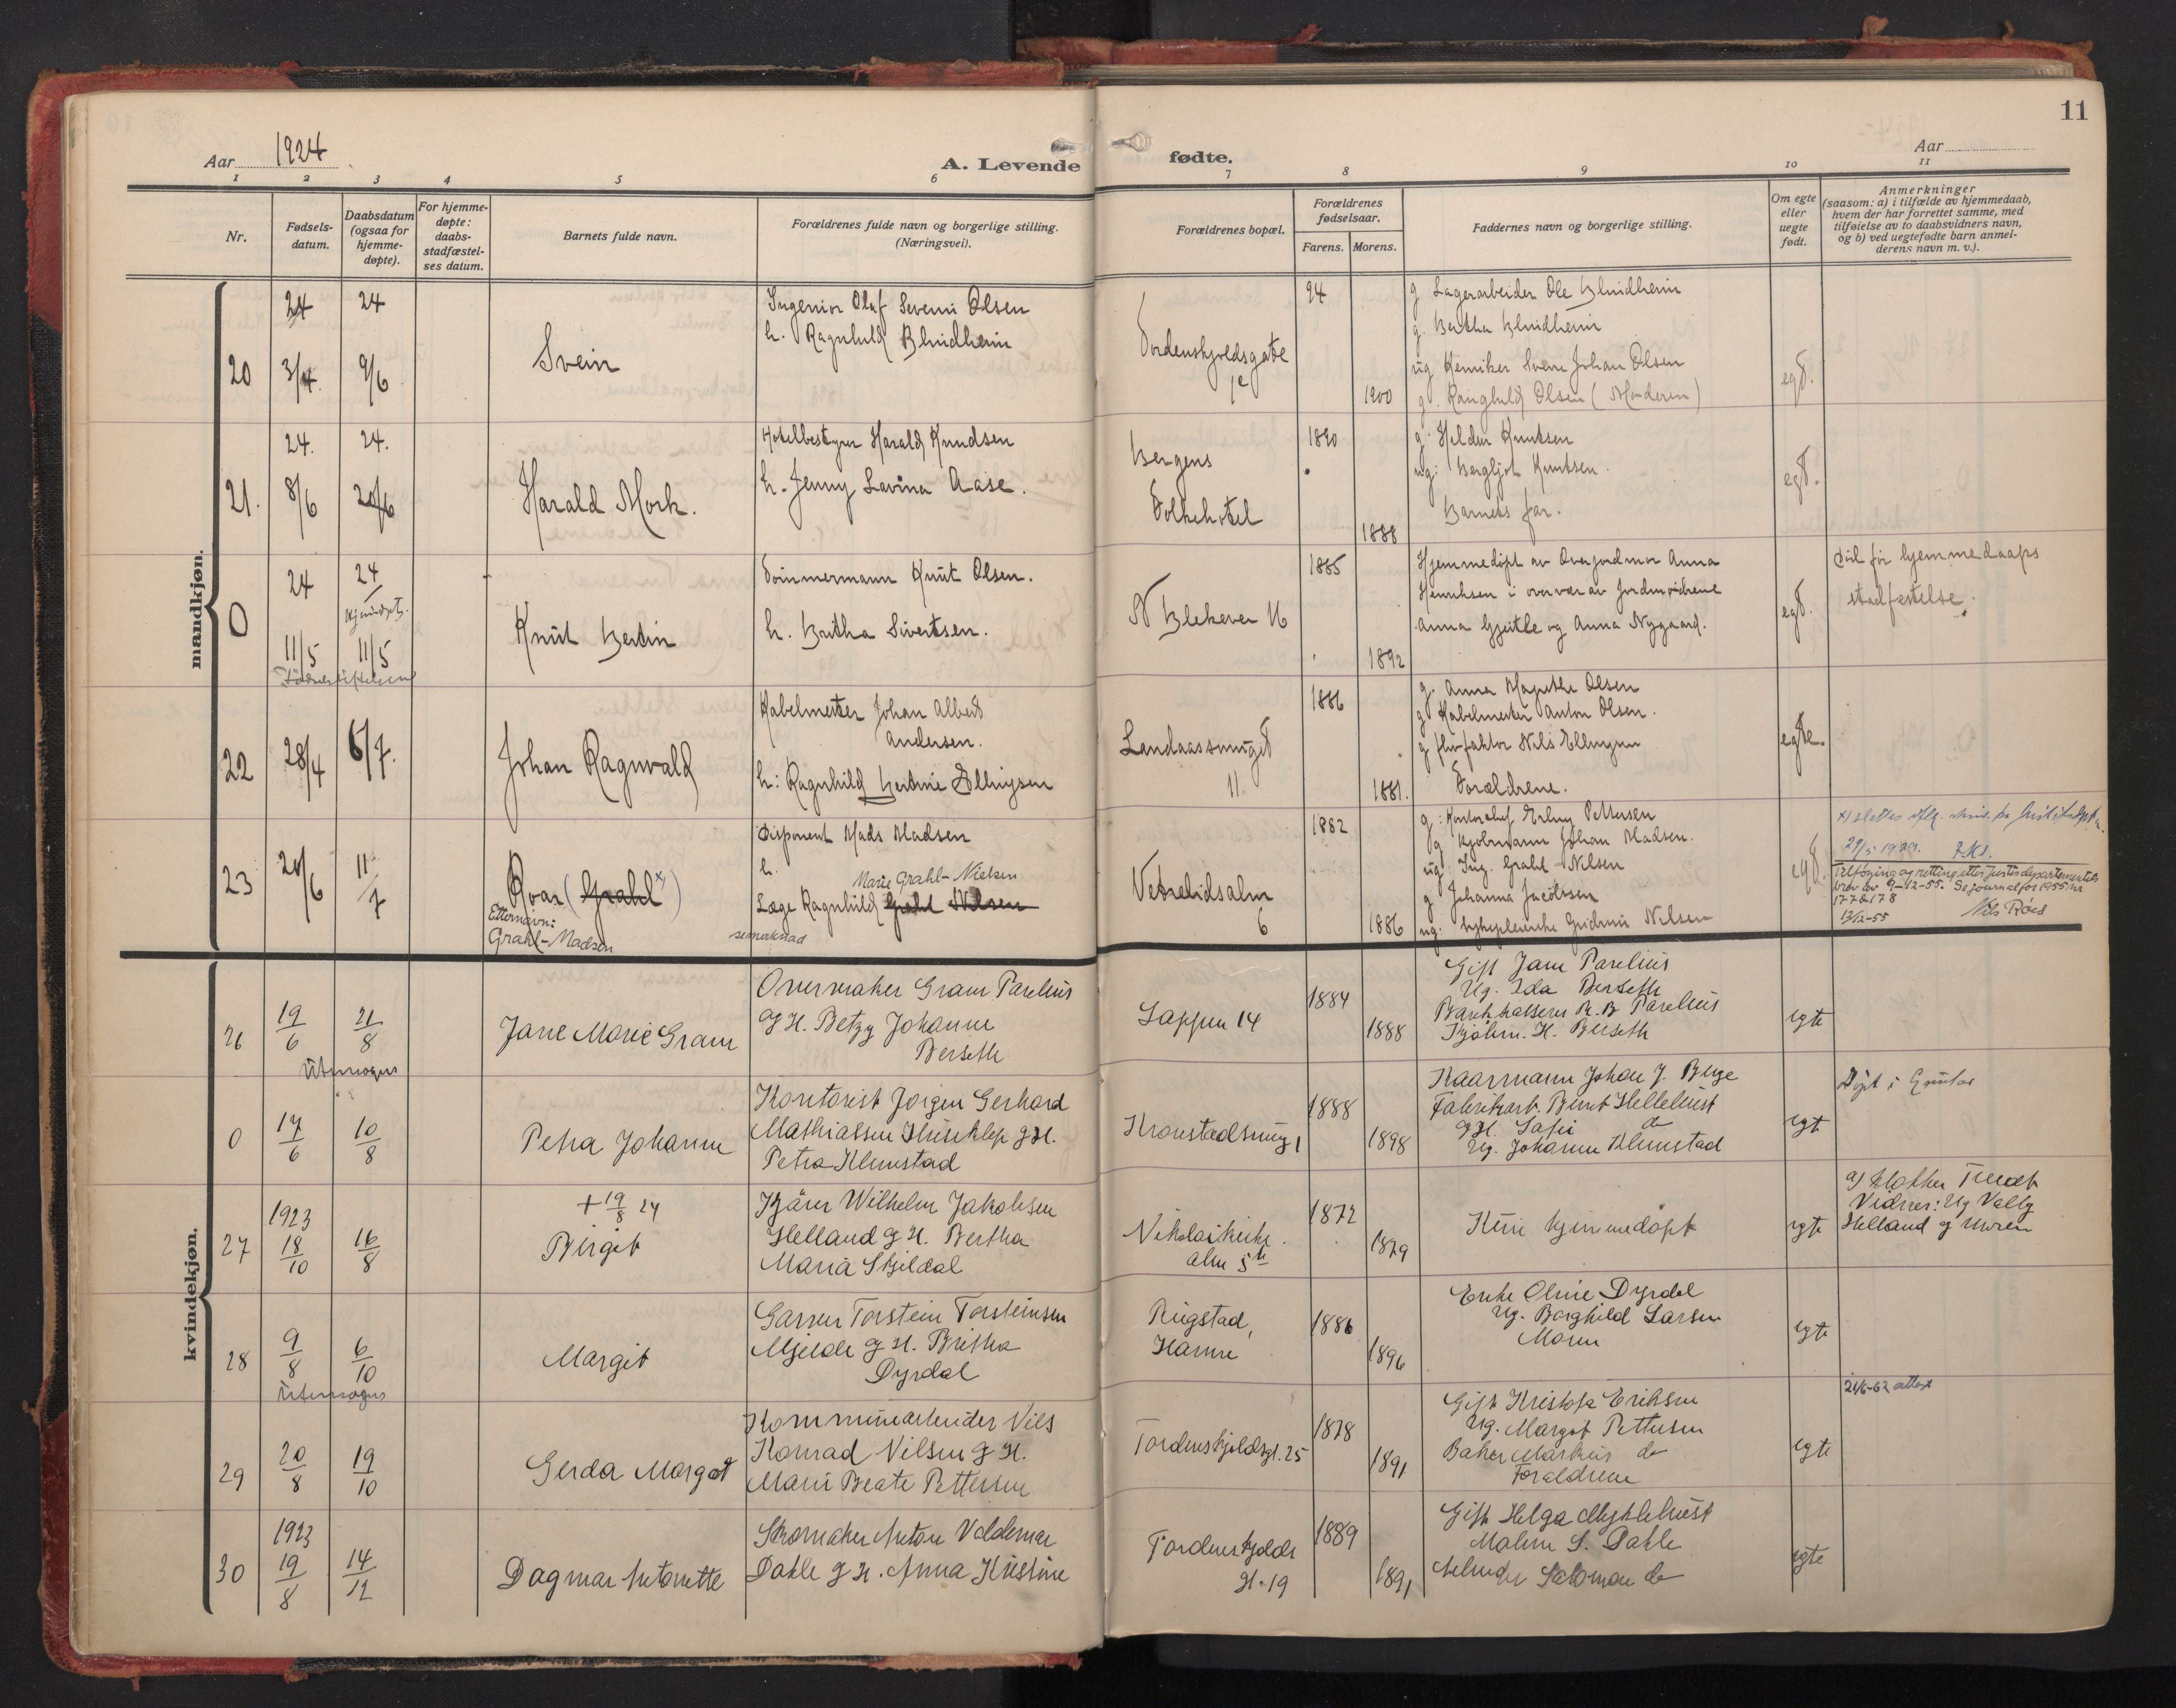 11
Aar 1924
A. Levende fødte.
Aar
1 2 3 4 5 6 7 8 9 10 11
Nr.
Fødsels-
datum.
Daabsdatum
(ogsaa for
hjemme-
døpte).
For hjemme-
døpte:
daabs-
stadfæstel-
ses datum.
Barnets fulde navn.
Forældrenes fulde navn og borgerlige stilling.
(Næringsvei).
Forældrenes bopæl.
Forældrenes
fødselsaar.
Farens. Morens.
Faddernes navn og borgerlige stilling.
Om egte
eller
uegte
født.
Anmerkninger
(saasom: a) i tilfælde av hjemmedaab,
hvem der har forrettet samme, med
tilføielse av to daabsvidners navn,
og b) ved uegtefødte barn anmel-
derens navn m. v.).
mandkjøn.
20
24
3/4
24
9/6
Svein
Ingeniør Olaf Severin Olsen
h. Ragnhild Blindheim
Tordenskjoldsgate
1c
94
1900
g Lagerarbeider Ole Blindheim
g. Bertha Blindheim
ug Kemiker Svein Johan Olsen
g. Ragnhild Olsen (Moderen)
egt.
21.
24.
8/6
24.
Harald Mork.
Hotelbestyrer Harald Knudsen
h. Jenny Lavina Aase.
Bergens
Folkehotel
1890
1888
g. Knutsen
ug: Bergljot Knutsen.
Barnets far.
egt.
0
24
11/5
24
11/5
Knut Bertin
Tømmermann Knut Olsen.
h. Britha Sivertsen.
N Blekevei 16
1885
1892
Hjemmedøpt av Overjordmor Anna
Henriksen i overvær av jordmødrene
Anna Gjeitle og Anna Nygaard.
egt.
Cit for hjemmedaaps
stadfestelse.
22
28/4
6/7.
Johan Ragnvald
Kabelmester Johan Albert
Andersen.
h: Ragnhild Bertine Ellingsen
Landaassvinget
11.
1886
1881.
g. Anna Magrethe Olsen
g Kabelmester Anton Olsen.
g Nils Ellingsen
Forældrene.
egte.
23
20/6
11/7
Roar (Grahl x)
Etternavn:
Grahl-Madsen
Disponent Mads Madsen
h.
Marie Grahl-Nielsen
Læge Ragnhild Grahl Nilsen
se merknad
Vetrelidsalm
6
1882
1886
g: Kontorchef Erling Pettersen
g Kjøbmann Johan Madsen.
ug: Ing. Grahl-Nilsen
g Johanna Jacobsen
ug: Sykepleierske Gudrun Nilsen
egt.
Tilføying og retting etter Justisdepartementets
brev av 9-12-55. Se journal for 1955 nr
177 & 178
13/12-55 Nils Røed
kvindekjøn.
26
19/6
21/8
Utensogns
Jane Marie Gram
Overvraker Gram Parelius
g H. Betzy Johanne
Berseth
Lappen 14
1884
1888
Gift Jane Parelius
Ug. Ida Berseth
Bankkasserer R. B Parelius
Kjøbm. H. Berseth
egte
0
17/6
10/8
Petra Johanne
Kontorist Jørgen Gerhard
Mathiassen Huseklep g H.
Petra Klemstad
Kronstadsving 1
1888
1898
Kaarmann Johan J. Berge
Fabrikarb. Bernt Hellelund
g H. Sofie do
Ug. Johanne Klemstad
egt
Døpt i
27
1923
18/10
16/8
+ 19/8 24
Birgit
Kjører Wilhelm Jakobsen
Helland g H. Bertha
Maria Skjeldal
Nikolaikirke
alm 5b
1872
1879
Kun hjemmedøpt
egte
a) Klokker Tvedt
Vidner: Ug Valborg
Helland g Moren
28
9/8
6/10
Utensogns
Margit
Garver Torstein Torsteinsen
Mjelde g H. Britha
Dyrdal
Ringstad,
Hamre
1886
1896
Enke Oline Dyrdal
Ug. Borghild Larsen
Moren
egte
29
20/8
19/10
Gerda Margot
Kommunearbeider Nils
Konrad Nilsen g H.
Marie Beate Pettersen
Tordenskjoldsgt. 25
1878
1891
Gift Kristofa Eriksen
Ug. Margot Pettersen
Baker Markus do
Foraldrene
egte
21/6-62 attest
30
1923
19/8
14/12
Dagmar Antonette
Skomaker Anton Valdemar
Dahle g H. Anna Kristine
Tordenskjolds
gt. 19
1889
1891
Gift Helga Myklebust
Malene S. Dahle
Arbeider Salomon do
egte